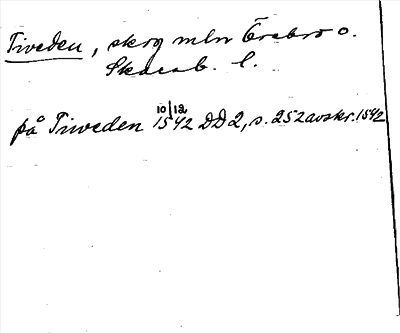 Tiveden, skog mln Örebro o.
Skarab. l.
på Tiweden 10/12 1542 DD2, s. 252 avskr. 1542